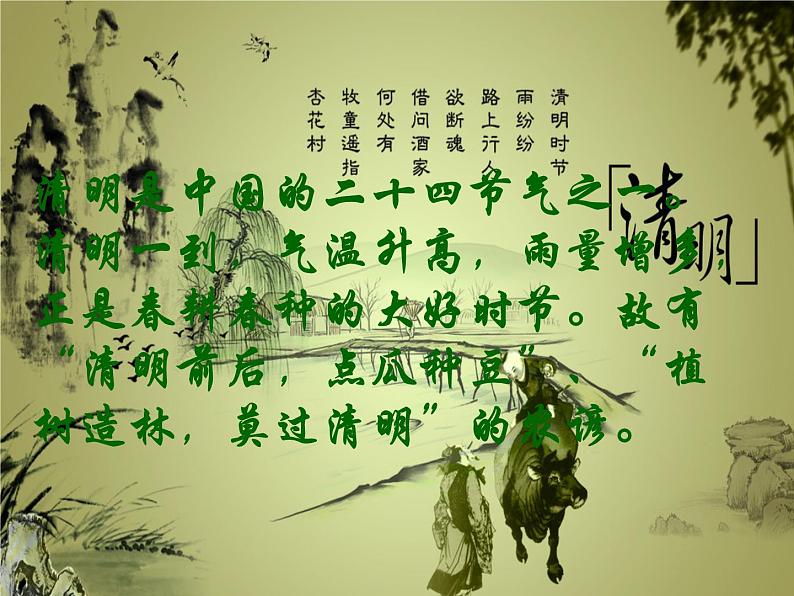 清明时节
雨纷纷
路上行人
欲断魂
借问酒家
何处有
牧童遥指
杏花村
「清明」
清明是中国的二十四节气之一。
清明一到，气温升高，雨量增多，
正是春耕春种的大好时节。故有
“清明前后，点瓜种�”、“植
树造林，莫过清明”的农谚。